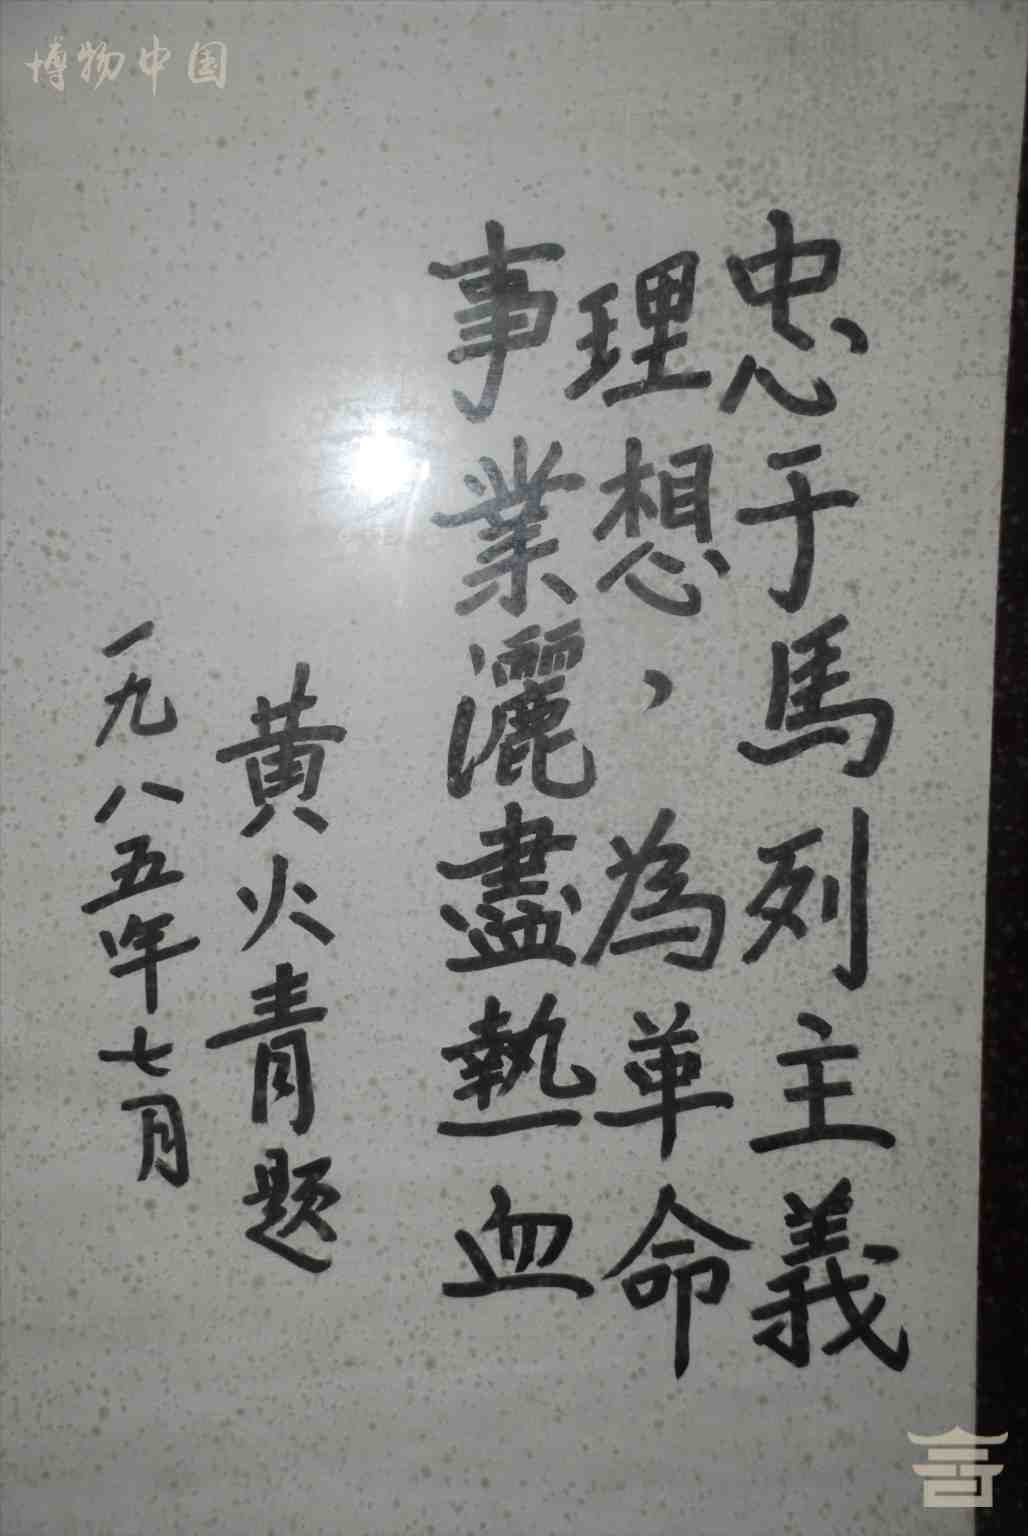 博物中国
忠于馬列主義
理想，為革命
事業灑盡熱血
黄火青題
一九八五年七月